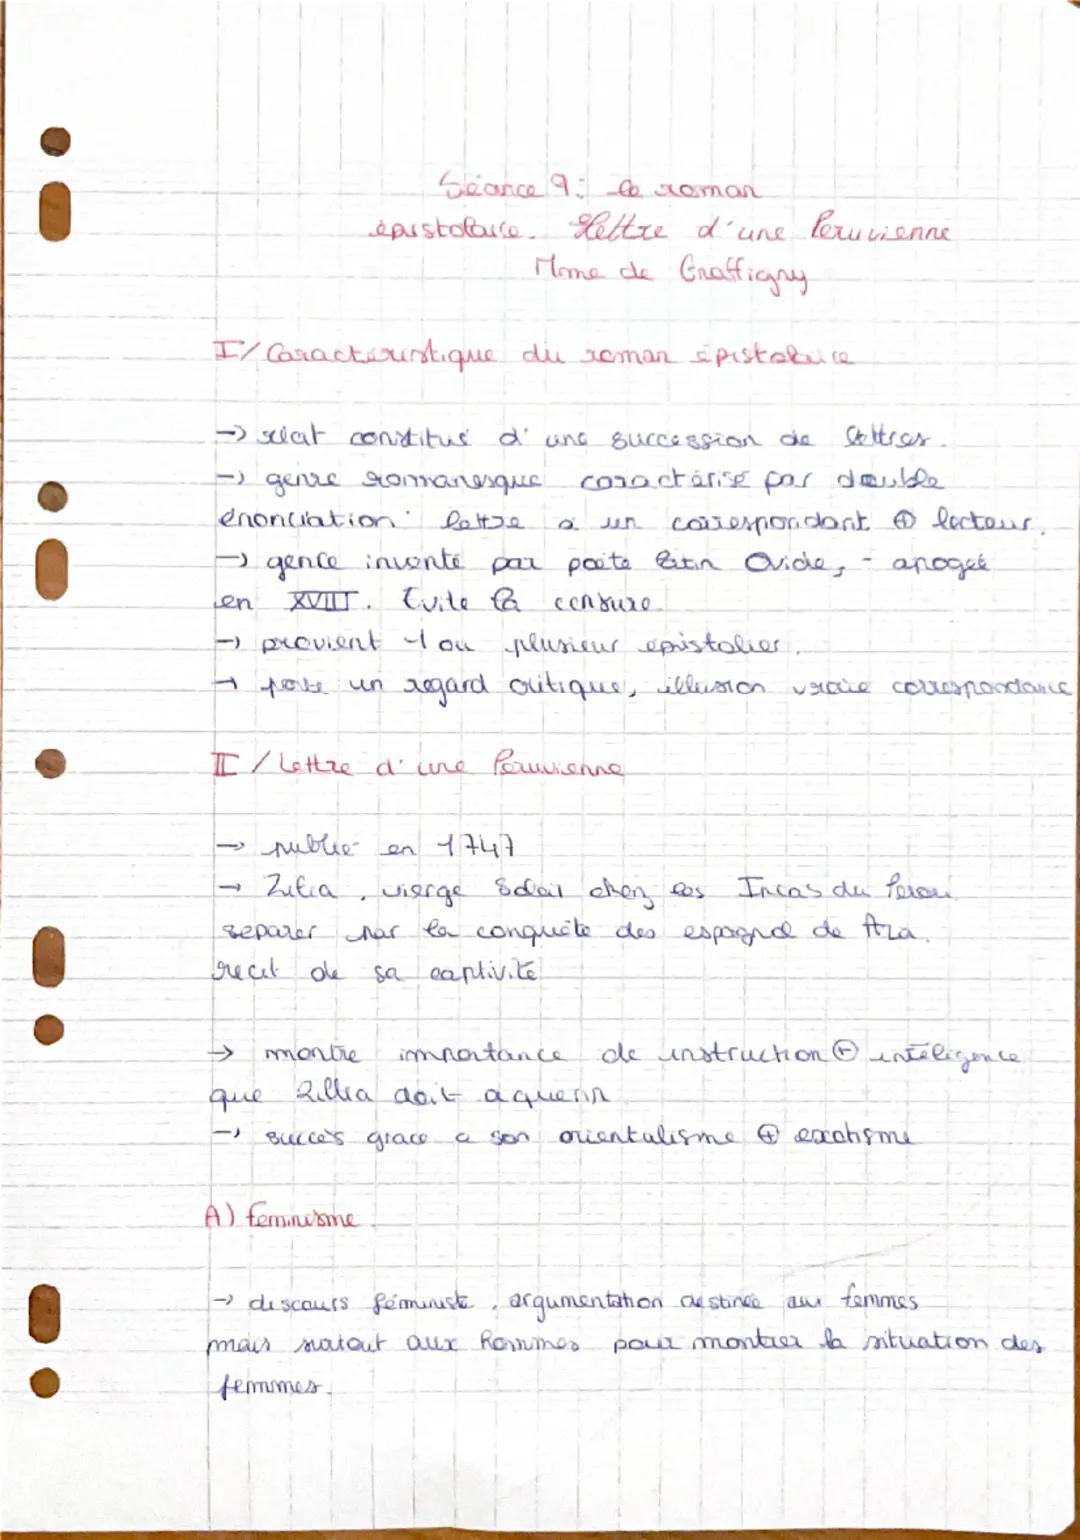 Séance 9: le roman
épistolaire. Lettre d'une Peruvienne
Mme de Graffigny
I/ Caractéristique du roman épistolaire
→ récit constitué d'une succession de lettres.
→ genre romanesque caractérisé par double
énonciation: lettre a un correspondant ⊕ lecteur.
→ genre inventé par poète latin Ovide, - apogée
en XVIII. Evite la censure.
→ provient 1 ou plusieur epistolier.
→ pose un regard critique, illusion vraie correspondance
II / Lettre d'une Péruvienne
→ publié en 1747
→ Zilia, vierge Soleil chez les Incas du Perou
separer par la conquête des espagnol de Aza.
recit de sa captivité
→ montre importance de instruction ⊕ inteligence
que Zillia doit aquerir
→ succès grace a son orientalisme ⊕ exotisme
A) feminisme
→ discours féministe, argumentation destinée aux femmes
mais surtout aux hommes pour montrer la situation des
femmes.